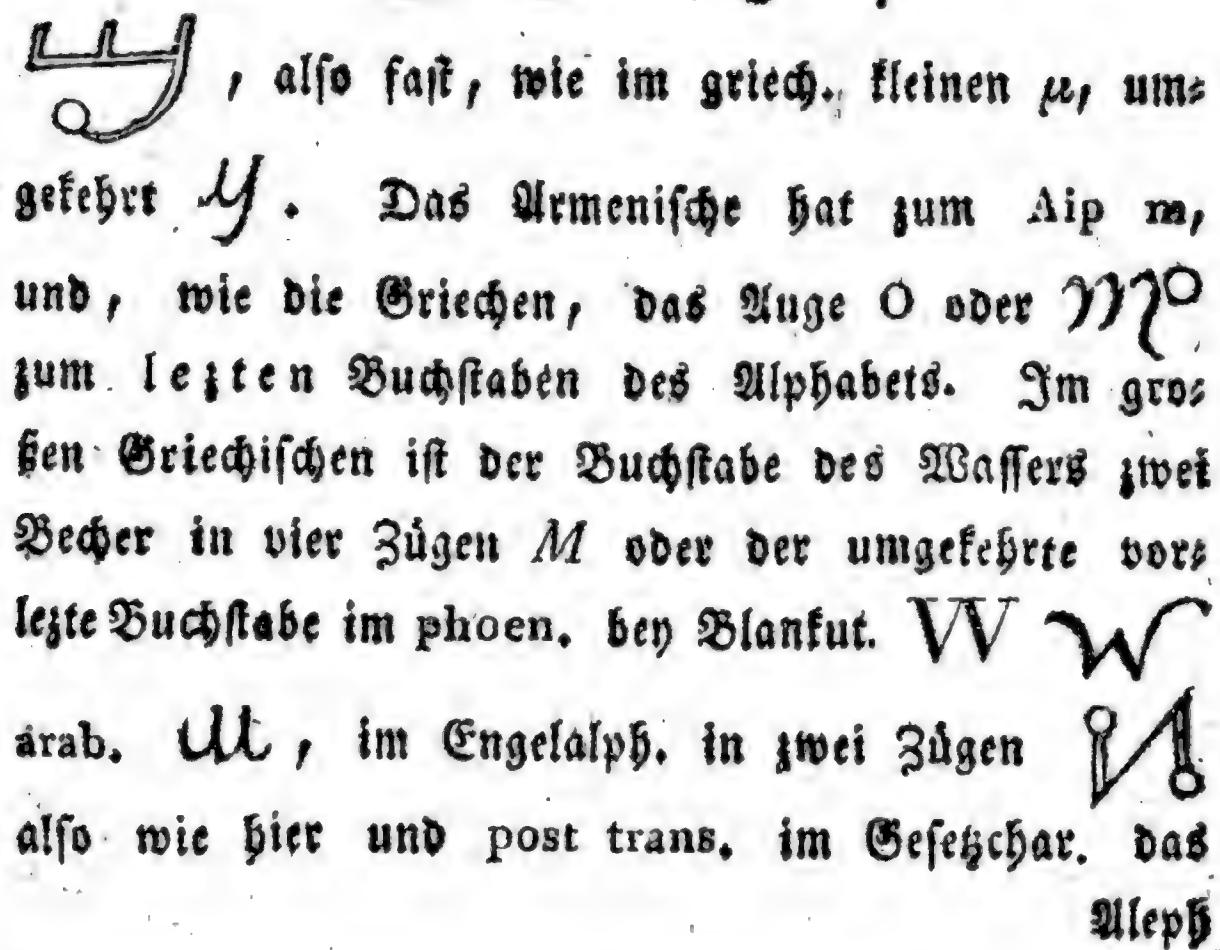 , also fast, wie im griech. kleinen μ, um⸗
gekehrt . Das Armenische hat zum Aip m,
und, wie die Griechen, das Auge O oder
zum lezten Buchstaben des Alphabets. Im gros⸗
ßen Griechischen ist der Buchstabe des Wassers zwei
Becher in vier Zügen M oder der umgekehrte vor⸗
lezte Buchstabe im phoen. bey Blankut. W
arab. , im Engelalph. in zwei Zügen
also wie hier und post trans. im Gesetzchar. das
Aleph